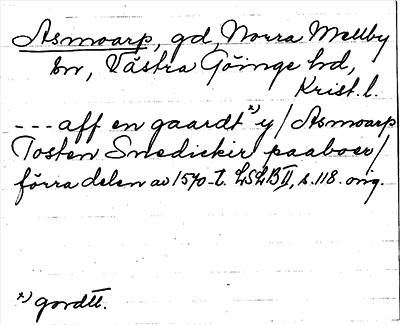 Asmoarp, gd, Norra Mellby
sn, Västra Göinge hd,
Krist. l.
--- aff en gaardt *) y / Asmoarp
Tosten Snedickir paaboer /
förra delen av 1570-t. LSLB II, s. 118. orig.
*) gordtt.